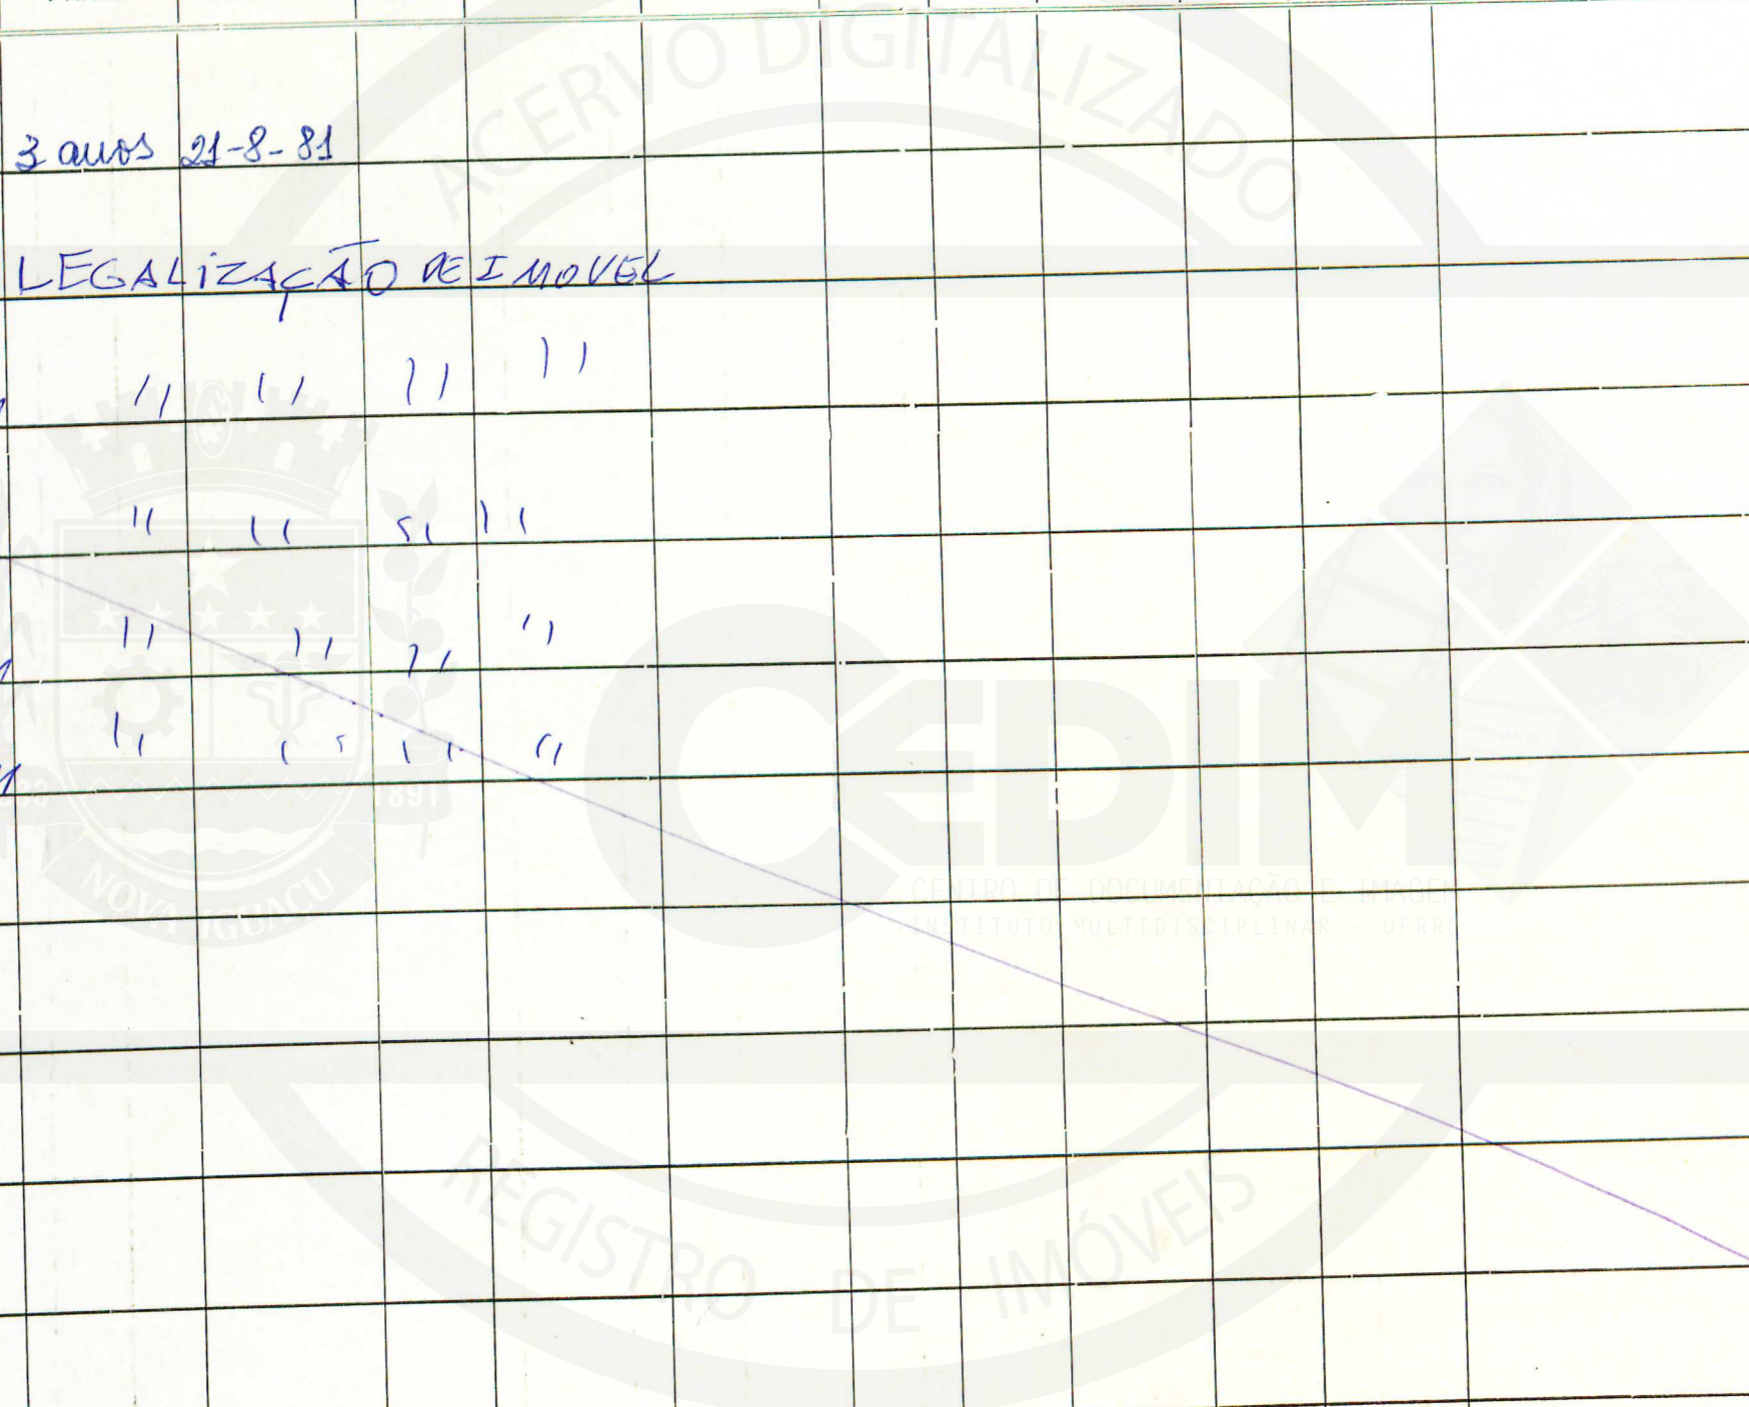 3 anos 21-8-81
LEGALIZAÇÃO DE IMOVEL
" " " "
" " " "
" " " "
" " " "
ACERVO DIGITALIZADO
1891
NOVA IGUAÇU
CEDIM
CENTRO DE DOCUMENTAÇÃO E IMAGEM
INSTITUTO MULTIDISCIPLINAR - UFRRJ
REGISTRO DE IMÓVEIS